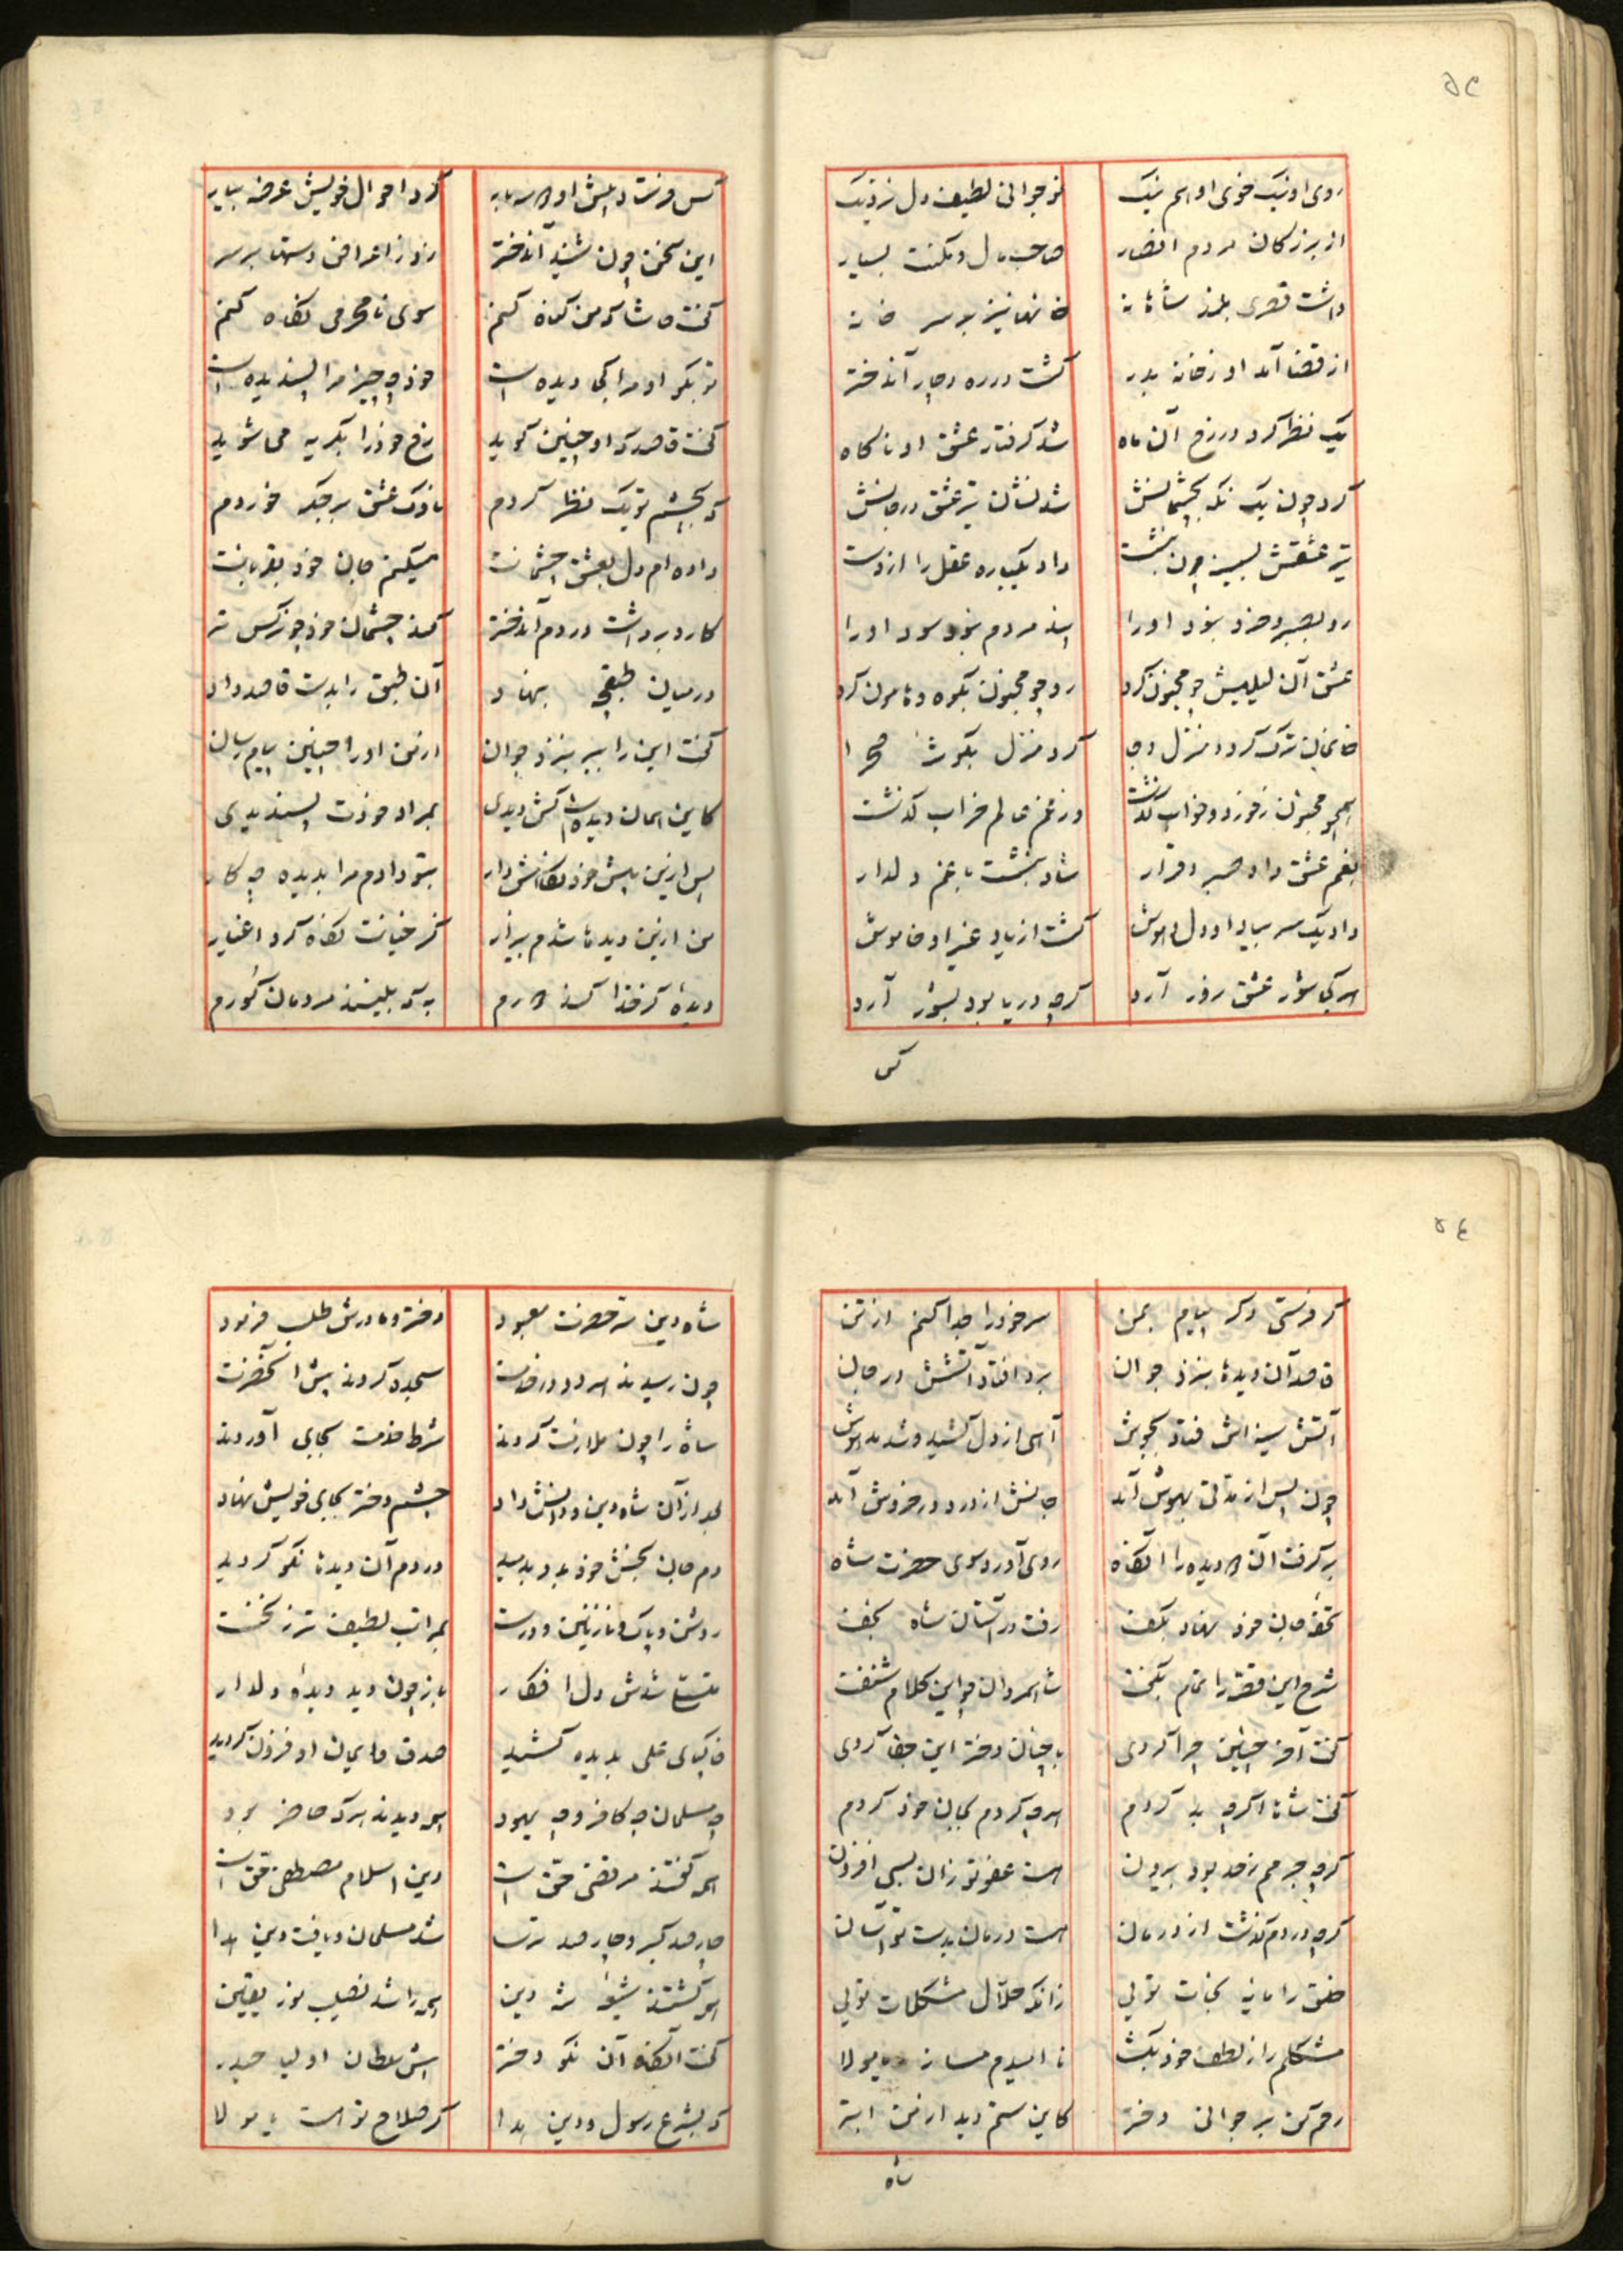 ۵۳
روی او نیک خوی او هم نیک نوجوانی لطیف دل نزدیک
از بزرکان مردم انصار صاحب مال و مکنت بسیار
داشت قصری بلند شاهانه
از قضا آمد او ز خانه بدر کشت در ره دچار آندختر
یک نظر کرد در رخ آن ماه شد کرفتار عشق او ناکاه
کرد چون یک نکه بچشمانش شد نشان تیر عشق در جانش
تیر عشقش بسینه چون بنشست داد یکباره عقل را از دست
رو بصبر و خرد نبود او را پند مردم نبود سود او را
عشق آن لیلیش چو مجنون کرد رو چو مجنون بکوه و هامون کرد
خانمان ترک کرد و منزل و جا کرد منزل بکوشه صحرا
همچو مجنون ز خورد و خواب کذشت وز غم عالم خراب کذشت
بغم عشق داد صبر و قرار شاد بنشست با غم دلدار
داد یک سر بیاد او دل و هوش کشت از یاد غیر او خاموش
هر کجا شور عشق روز آرد کرچه دریا بود بشور آرد
کس
کس فرستاد پیش او کرد احوال خویش عرضه بیار
این سخن چون شنید آندختر زد ز اعراض دستها بر سر
کفت حاشا که من کناه کنم سوی نامحرمی نکاه کنم
تو بکو او مرا کجا دیده است خود چه چیز مرا پسندیده است
کفت قاصد که او چنین کوید رخ خود را بکریه می شوید
که بچشم تو یک نظر کردم ناوک عشق بر جکر خوردم
داده ام دل بعشق چشمانت میکنم جان خود بقربانت
کارد برداشت در دم آندختر کند چشمان خود چو نرکس تر
در میان طبقچه بنهاد آن طبق را بدست قاصد داد
کفت این را ببر بنزد جوان از من او را چنین پیام رسان
کاین همان دیدهاست کش دیدی بمراد خودت پسندیدی
پس ازین پیش خود نکاهش دار بتو دادم مرا بدیده چه کار
من ازین دیدها شدم بیزار کز خیانت نکاه کرد اغیار
دیدها کر خدا کند به که بینند مردمان کورم
۵۴
کر فرستی دکر پیام بمن سر خود را جدا کنم از تن
قاصد آن دیدها بنزد جوان برد افتاد آتشش در جان
آتش سینه اش فتاد بجوش آهی از دل کشید و شد مدهوش
چون پس از مدتی بهوش آمد جانش از درد در خروش آمد
بر کرفت آن دیده را آنکاه روی آورد سوی حضرت شاه
تحفه جان خود نهاد بکف رفت در آستان شاه نجف
شرح این قصه را تمام بکفت شاه مردان چو این کلام شنفت
کفت آخر چنین چرا کردی با چنان دختر این جفا کردی
کفت شاها اکرچه بد کردم هر چه کردم بجان خود کردم
کرچه جرمم ز حد بود بیرون هست عفو تو زان بسی افزون
کرچه دردم کذشت از درمان هست درمان بدست تو آسان
خلق را مایه نجات تویی زانکه حلال مشکلات تویی
مشکلم را ز لطف خود بکشا ناامیدم مساز یا مولا
رحم کن بر جوانی دختر کاین ستم دید از من ابتر
شاه
شاه دین سر حضرت معبود دختر و مادرش طلب فرمود
چون رسیدند هر دو در خدمت سجده کردند پیش آنحضرت
شاه را چون ملازمت کردند شرط خدمت بجای آوردند
بعد از آن شاه دین و دانش داد چشم دختر بجای خویش نهاد
دم جان بخش خود بدو بدمید در دم آن دیدها نکو کردید
روشن و پاک و نازنین و درست بمراتب لطیف تر ز نخست
باز چون دید دیده دلدار
خاکپای علی بدیده کشید صدق و ایمان او فزون کردید
چه مسلمان چه کافر و چه یهود همه دیدند هر که حاضر بود
همه کفتند مرتضی حق است دین اسلام مصطفی حق است
چار صد کبر و چار صد ترسا شد مسلمان و یافت دین هدا
همه کشتند شیعه شه دین همه را شد نصیب نور یقین
کفت آنکاه آن نکو دختر کش سلطان اولیا حیدر
که بشرع رسول و دین هدا کر صلاح تو هست یا مولا